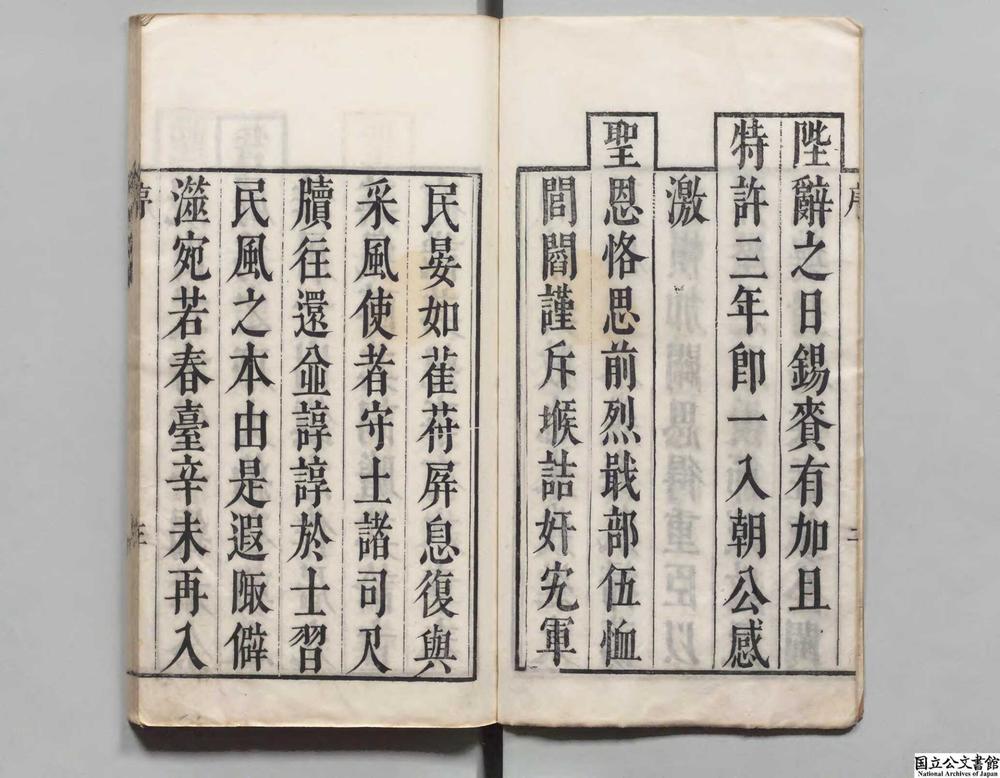 陛辭之日錫賚有加且
特許三年即一入朝公感
激
聖恩恪思前烈戢部伍恤
閭閻謹斥堠詰奸宄軍
民晏如萑苻屏息復與
采風使者守土諸司尺
牘往還並諄諄於士習
民風之本由是遐陬僻
澨宛若春臺辛未再入
序
二
序
三
国立公文書館
National Archives of Japan